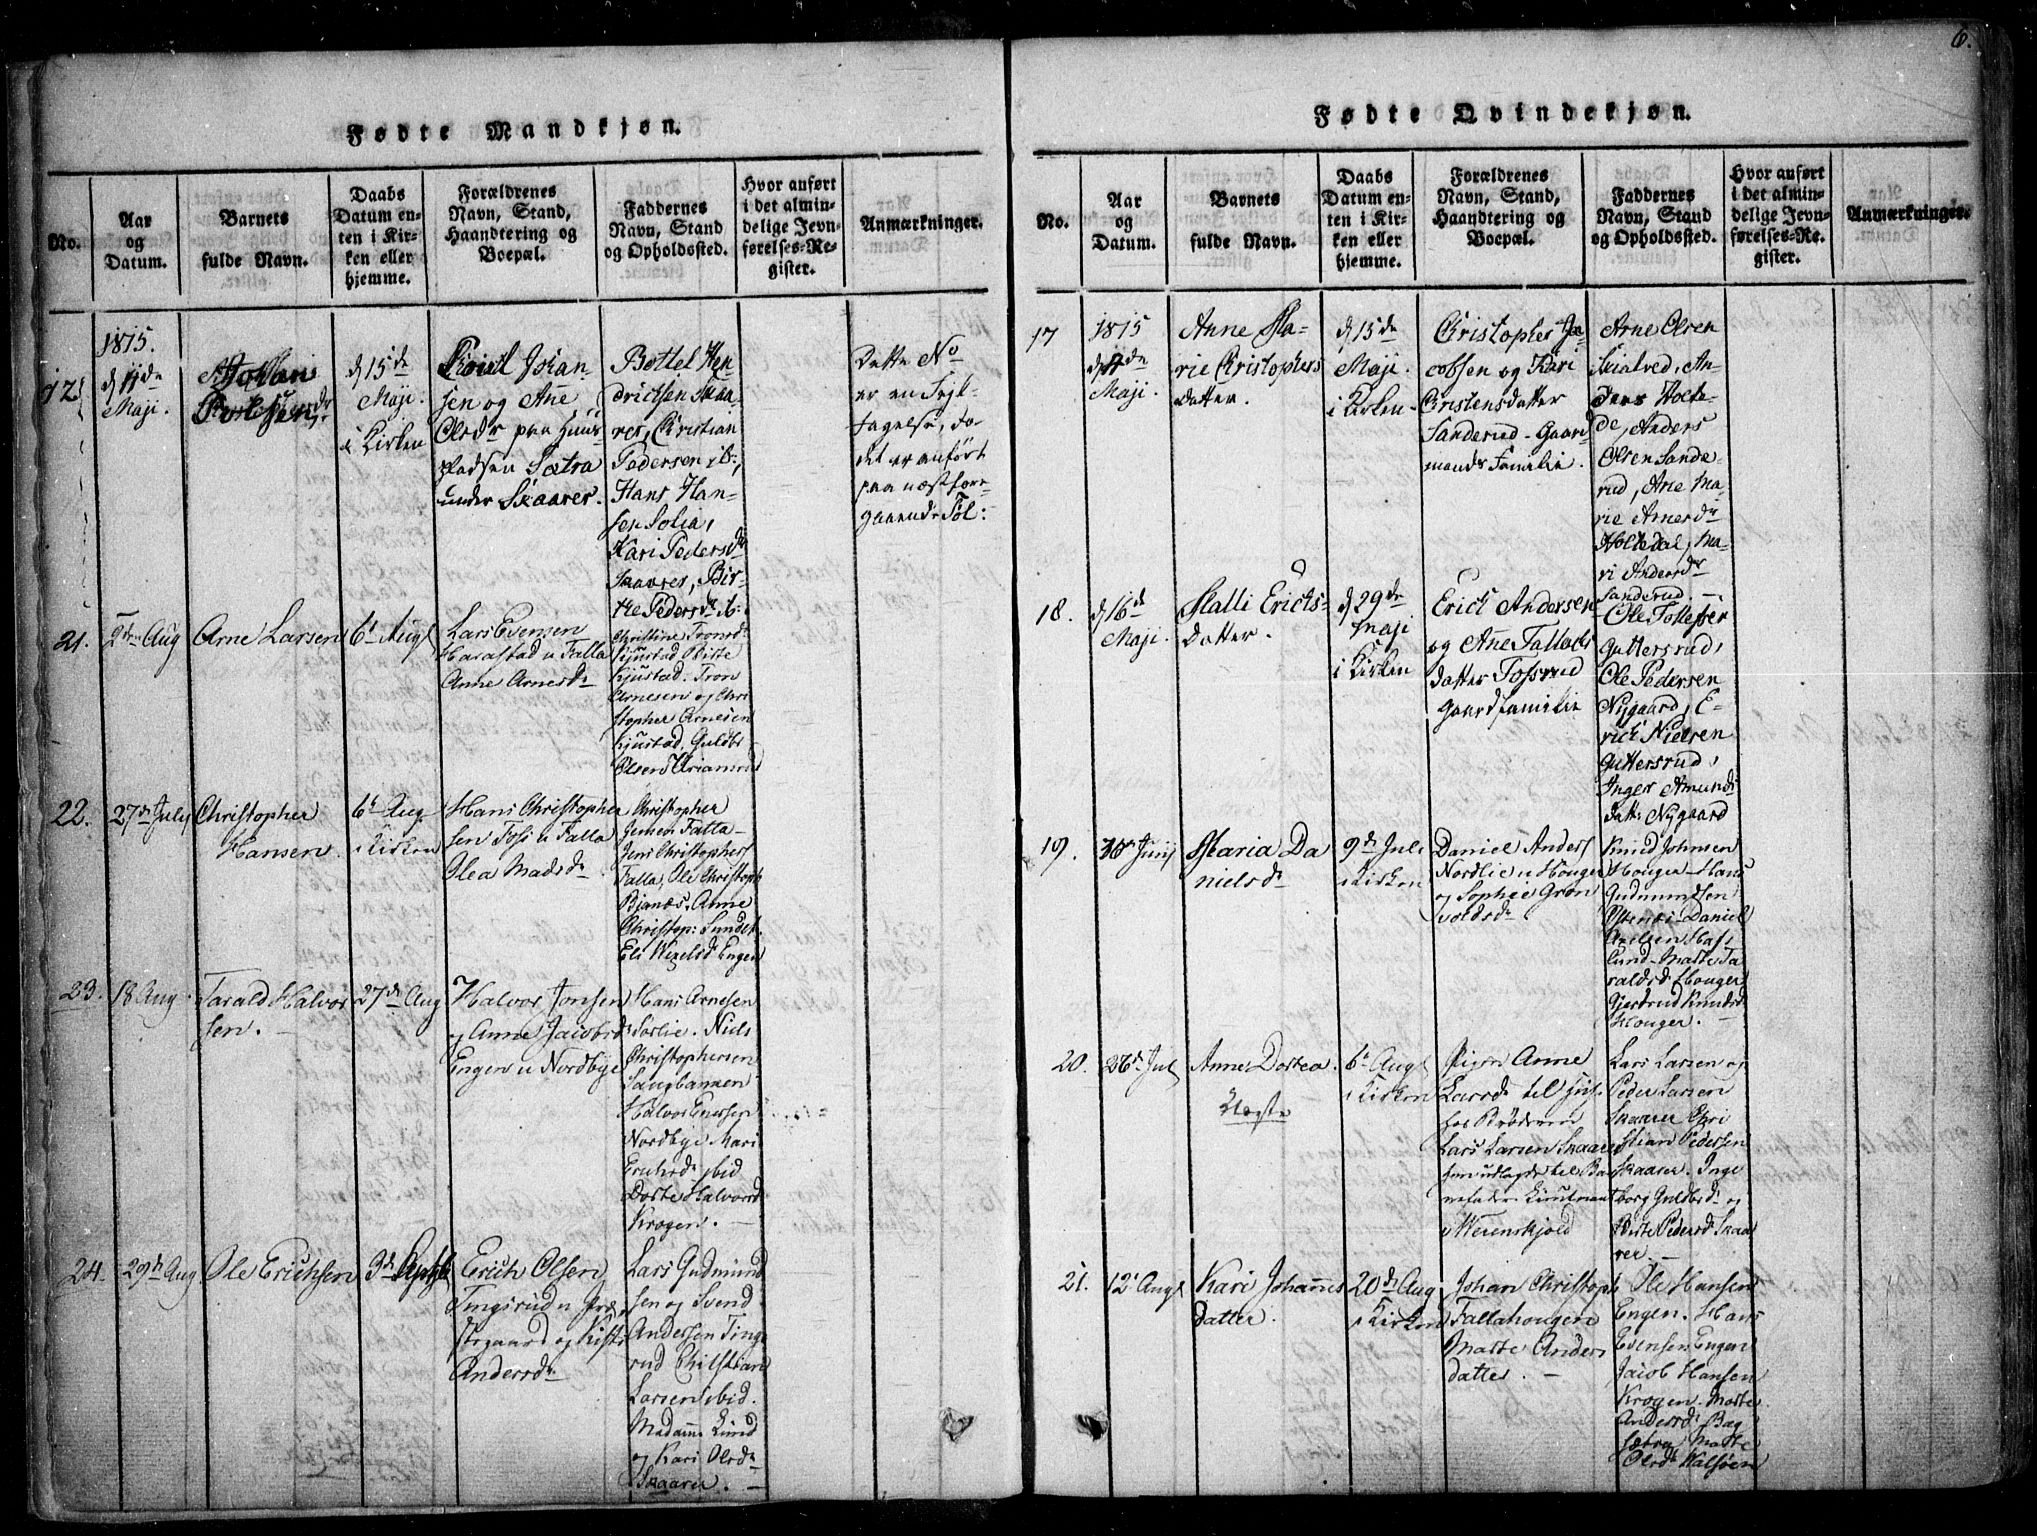 6.
Fødte Mandkjøn.
No.
Aar
og
Datum.
Barnets
fulde Navn.
Daabs
Datum en-
ten i Kir-
ken eller
hjemme.
Forældrenes
Navn, Stand,
Haandtering og
Boepæl.
Faddernes
Navn, Stand
og Opholdssted.
Hvor anført
i det almin-
delige Jevn-
førelses-Re-
gister.
Anmærkninger.
12
1815.
d 11de
Maji.
Johan
d 15de
Maji.
i Kirken
Johan-
sen og Ane
Olsdr paa Huus-
pladsen Sætra
under Skaarer.
Bottel Hen-
drichsen Skaa-
rer, Christian
Pedersen ib:,
Hans Han-
sen Solia,
Kari Pedersdr
Skaarer, Bir-
the Pedersdr ib:
Dette No
er en Fejl-
tagelse, da
det er anført
paa næstfore-
gaaende Fol:
21.
2den Aug
Arne Larsen
6t Augt
Lars Evensen
Harastad u Falla
Anne Arnesdr
Christine Tronsdr
Kjustad Birte
Kjustad. Tron
Arnesen og Chri
stopher Arnesen
Kjustad. Guldbr
Olsen
22.
27de July
Christopher
Hansen.
6t Aug
i Kirken
Hans Christopher
sen Foss u Falla
Olea Madsdr
Christopher
Jensen Falla-
Jens Christophers
Falla, Ole Christoph
Bjanæs. Anne
Christop: Sundet.
Eli Wexelsdr Engen
23.
18 Aug.
Tarald Halvor
sen.
27de Aug
Halvor Jonsen
og Anne Jacobsdr
Engen u Nordbye
Hans Arnesen
Sørlie. Niels
Christophersen
Saugbanken
Halvor Ericksen
Nordbye Mari
Erichsdr ibid
Dorte Halvorsdr
Krogen.
24.
29de Aug
Ole Erichsen
3de Septbr
Erich Olsen
Tingsrud u Præ
stegaard og Kisti
Andersdr
Lars Gudmund
sen og Svend
Andersen Tings
rud Christian
Larsen ibid.
Madame Lund
og Kari Olsdr
Skaarer.
Fødte Qvindekjøn.
No.
Aar
og
Datum.
Barnets
fulde Navn.
Daabs
Datum en-
ten i Kir-
ken eller
hjemme.
Forældrenes
Navn, Stand,
Haandtering og
Boepæl.
Faddernes
Navn, Stand
og Opholdssted.
Hvor anført
i det almin-
delige Jevn-
førelses-Re-
gister.
Anmærkninger.
17
1815
d 11de
Maji.
Anne Ma-
rie Christophers
datter.
d 15de
Maji.
i Kirken.
Christopher Ja-
cobsen og Kari
Christensdatter
Sanderud - Gaar-
mands Familie.
Arne Olsen
Skatved, An-
ders Holte-
de, Anders
Olsen Sande-
rud, Ane Ma-
rie Arnesdr
Holtedal, Ma-
ri Andersdr
Sanderud.
18.
d 16de
Maji.
Malli Ericks-
datter.
d 29de
Maji
i Kirken
Erick Andersen
og Ane Tallachs
datter Fossrud
gaard familie
Ole Tollefsen
Guttersrud,
Ole Pedersen
Nygaard, E-
rich Nielsen
Guttersrud,
Inger Amunds
datt: Nygaard
19.
30 Junij
Maria Da
nielsdr
9de Juli
i Kirken
Daniel Anders
Nordlie u Houger
og Sophie Grøn
voldsdr
Knud Johnsen
Houger - Hans
Gudmundsen
Daniel
Axelsen Haf
lund - Marte Ta
raldsdr Houger
Giertrud Knudsdr
Houger.
20.
26de Jul
Anne Dortea.
Uægte
6t Augt
i Kirken
Pigen Anne
Larsdr til huse
hos Broderen
Lars Larsen Skaarer
hun udlagde til Bar
nefader Lieutnant
Werenskjold
Lars Larsen og
Peder Larsen
Skaarer Chri
stian Pedersen
Skaarer. Inge
borg Guldbrdr og
Birte Pedersdr Skaa
rer.
21.
12t Augt
Kari Johannes
datter.
20de Aug
i Kirken
Johan Christoph
Fallahougen
Marte Anders
datter.
Ole Hansen
Engen. Hans
Evensen Engen
Jacob Hansen
Krogen. Marte
Andersdr Bag
sætra, Marte
Olsdr Kalsøen